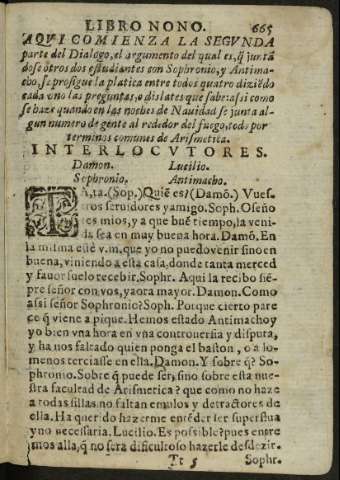 LIBRO NONO. 665
AQVI COMIENZA LA SEGVNDA
parte del Dialogo, el argumento del qual es, q̃ juntã
dose otros dos estudiantes con Sophronio, y Antima-
cho, se prosigue la platica entre todos quatro diziẽdo
cada vno las preguntas, o dislates que sabe: assi como
se haze quando en las noches de Navidad se junta al-
gun numero de gente al rededor del fuego, todo por
terminos comunes de Arismetica.
INTERLOCVTORES.
Damon. Lucilio.
Sophronio. Antimacho.
TA, ta. (Sop.) Quiẽ es? (Damõ.) Vues-
tros seruidores y amigo. Soph. O seño
res mios, y a que buẽ tiempo, la veni-
da sea en muy buena hora. Damõ. En
la misma estè v.m. que yo no puedo venir sino en
buena, viniendo a esta casa, donde tanta merced
y fauor suelo recebir. Sophr. Aqui la recibo siẽ-
pre señor con vos, y aora mayor. Damon. Como
assi señor Sophronio? Soph. Porque cierto pare
ce q̃ viene a pique. Hemos estado Antimacho y
yo bien vna hora en vna controuersia y disputa,
y ha nos faltado quien ponga el baston, o a lo-
menos terciasse en ella. Damon. Y sobre q̃? So-
phronio. Sobre q̃ puede ser, sino sobre esta nue-
stra facultad de Arismetica? que como no haze
a todas sillas no faltan emulos y detractores de
ella. Ha querido hazerme entẽder ser superflua
y no necessaria. Lucilio. Es possible? pues entre
mos alla, q̃ no sera dificultoso hazerle desdezir.
Tt 5 Sophr.